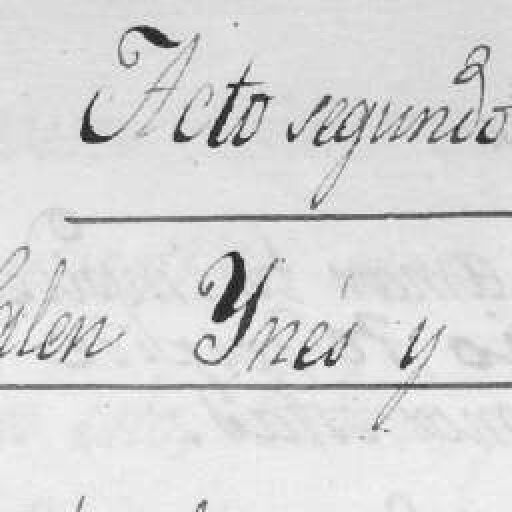 Acto segundo
Salen Ynés y